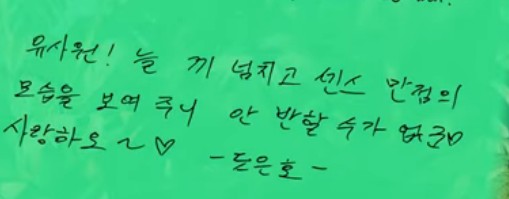 유사원! 늘 끼 넘치고 센스 만점의
모습을 보여 주니 안 반할 수가 없군
사랑하오~♡
-도은호-